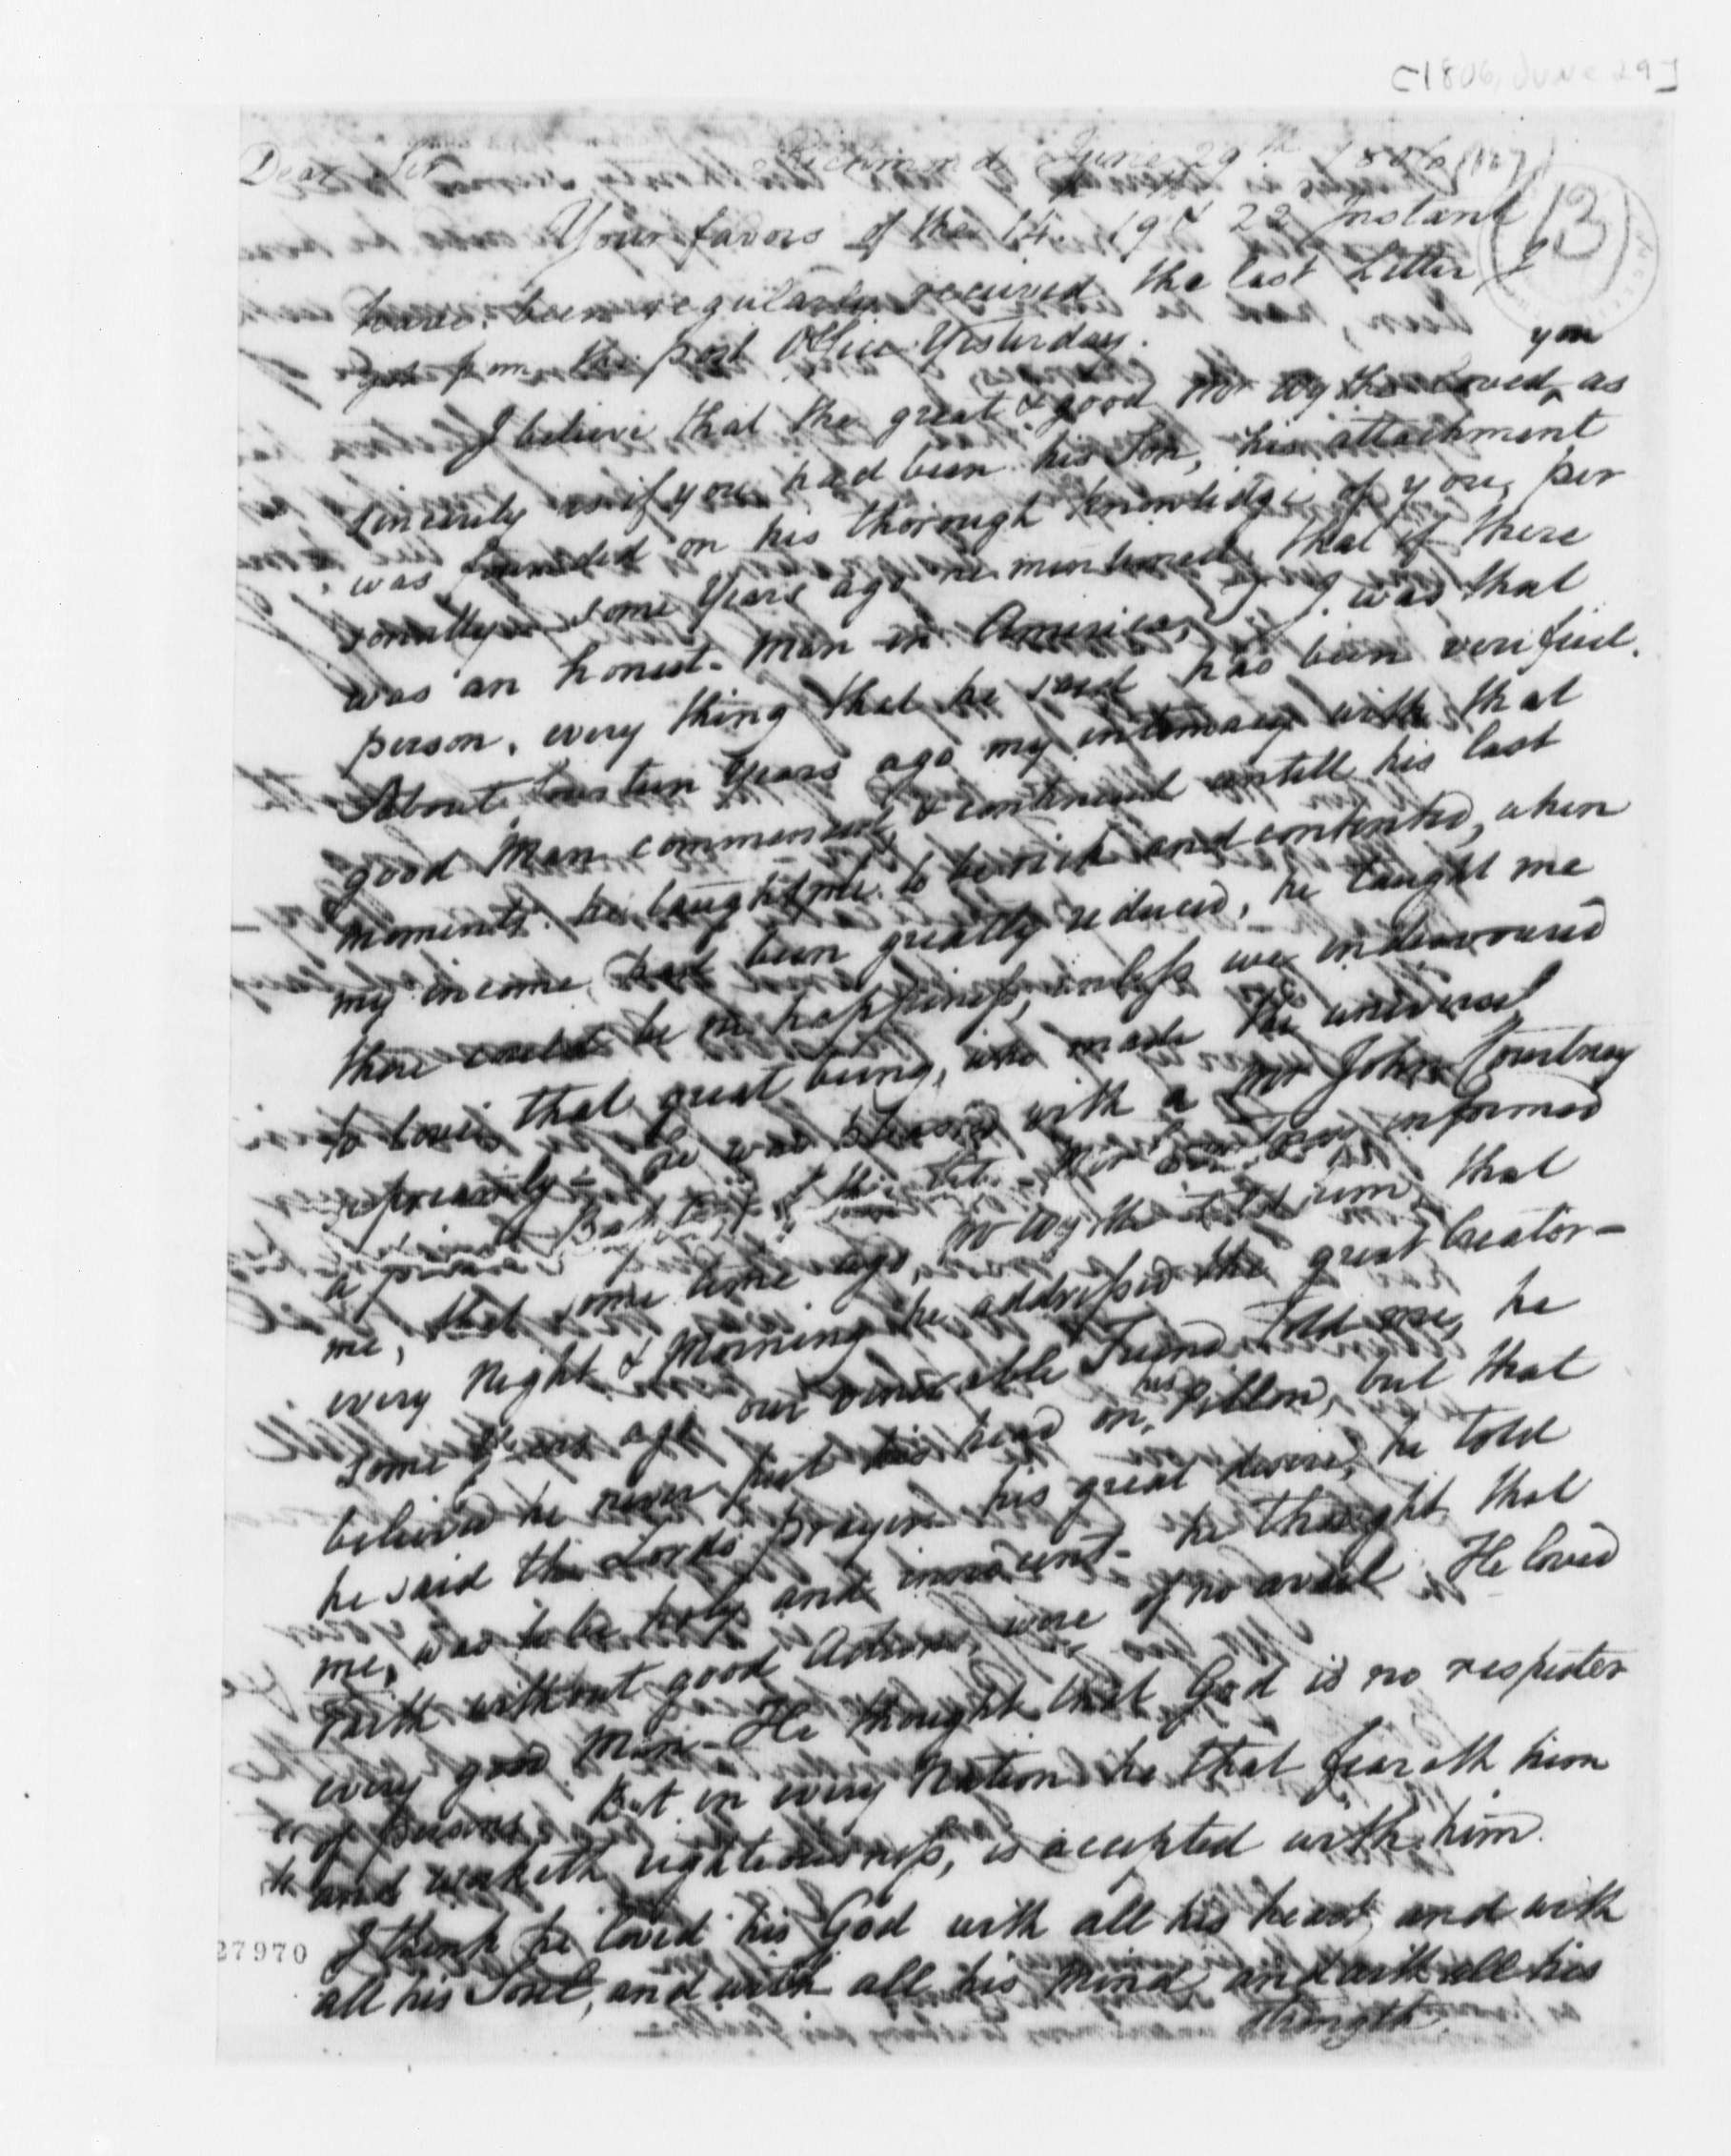 [1806, June 29]
Dear Sir Richmond June 29th 1806
13
Your favors of the 14. 19 & 22 Instant
have been regularly received the last Letter I
got from the post Office Yesterday.
I believe that the great & good Mr Wythe loved you as
sincerely as if you had been his Son, his attachment
was founded on his thorough knowledge of you, per
sonally some Years ago he mentioned, that if there
was an honest Man in America, was that
person, every thing that he said has been verified.
About fourteen Years ago my intimacy with that
good Man commenced, & continued untill his last
moments he taught me to be rich and contented, when
my income had been greatly reduced, he taught me
there could be no happiness, unless we endeavoured
to love that great being, who made the universe
he was with a Mr John Courtney
a Baptist informed
me, that some time ago, Mr Wythe told him, that
every Night & Morning he addressed the great Creator—
some Years ago our venerable Friend told me, he
believed he never put his head on his Pillow, but that
he said the Lords prayer his great desire, he told
me, was to be holy and innocent— he thought, that
Faith without good Actions, were of no avail. He loved
every good Man— He thought that God is no respecter
of persons, But in every Nation he that feareth him
and worketh righteousness, is accepted with him.
I think he loved his God with all his heart, and with
all his Soul, and with all his Mind, and with all his
strength
27970